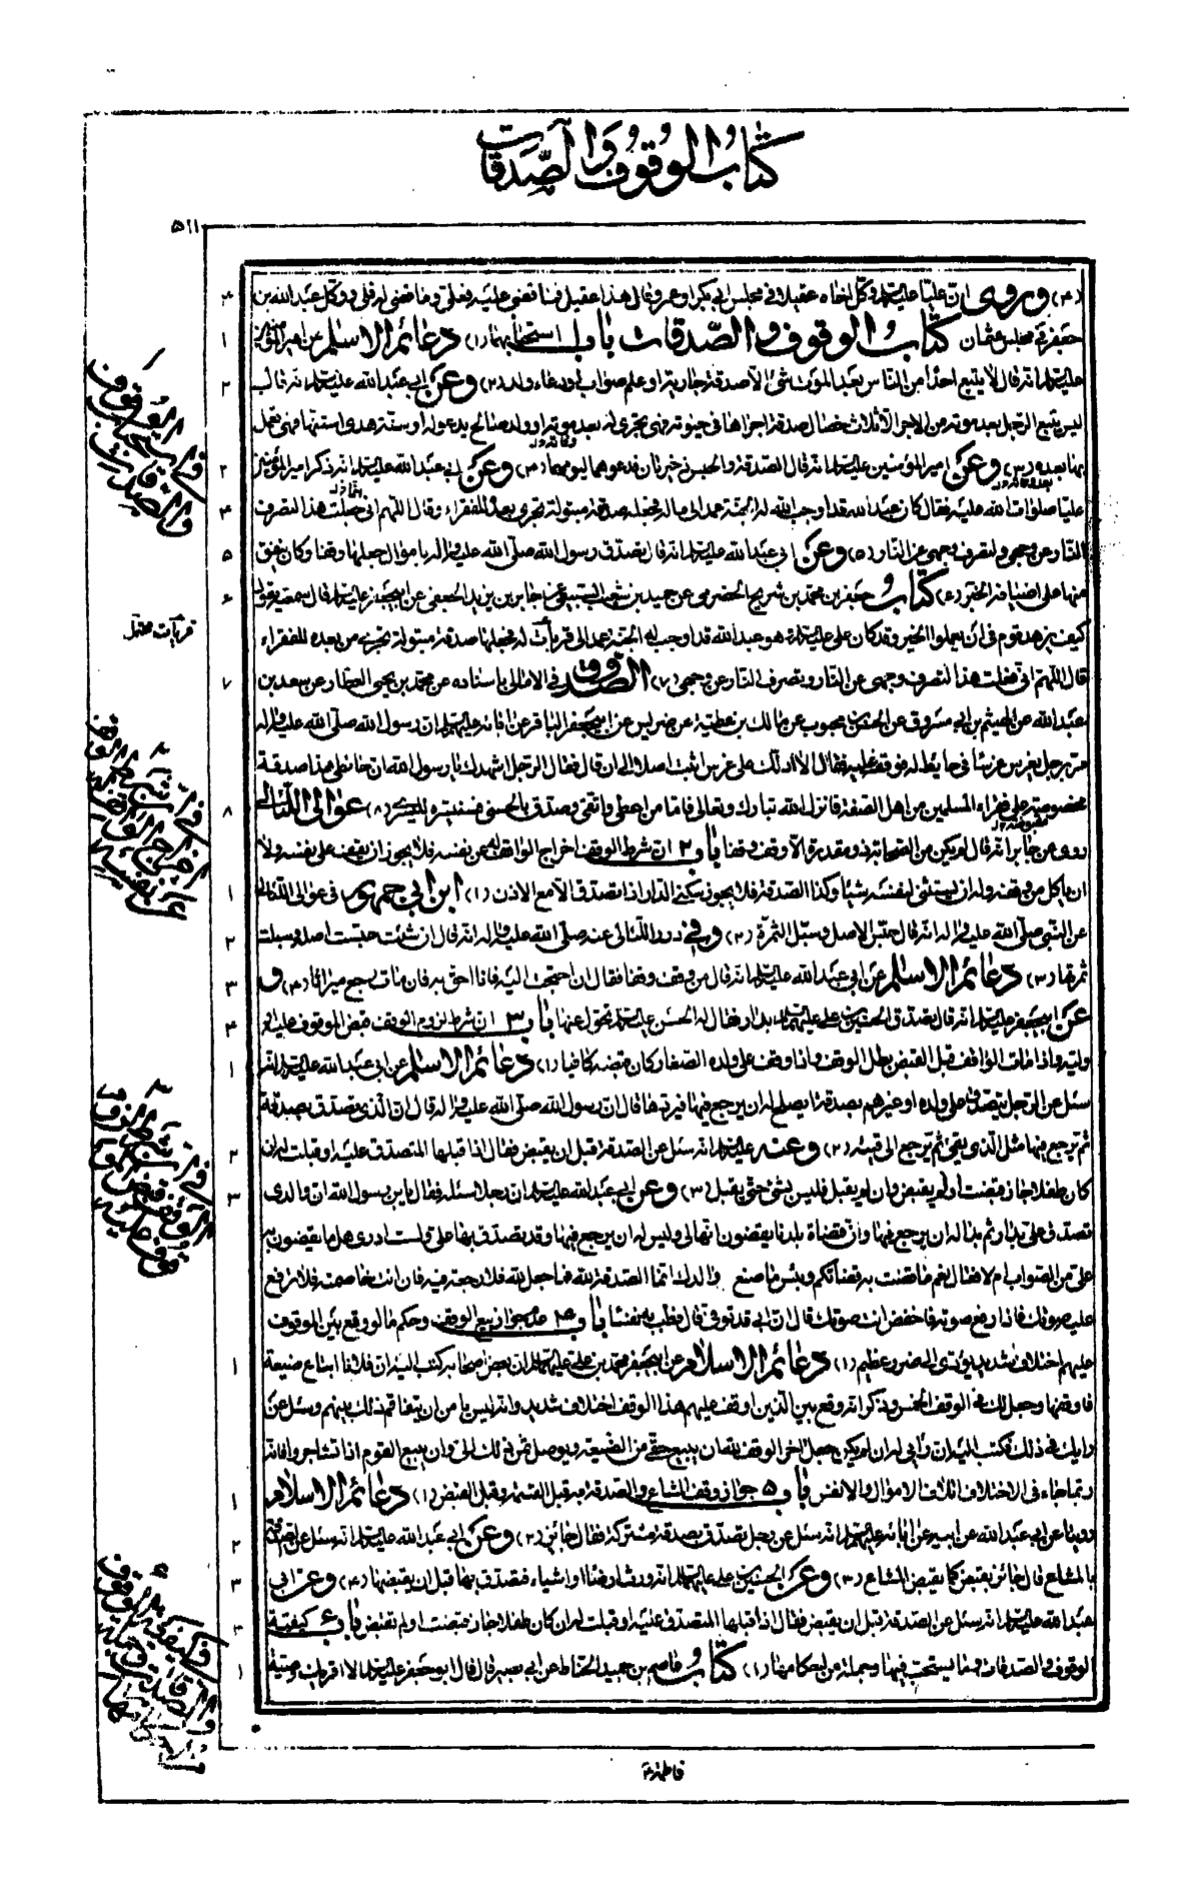 كتاب الوقوف والصدقات
٥١١
(٤) وروى ان عليا عليه السلام وكل اخاه عقيلا في مجلس ابي بكر او عمر وقال هذا عقيل فما قضى عليه فعلي وما قضى له فلي ووكل عبد الله بن ٤
جعفر في مجلس عثمان كتاب الوقوف والصدقات باب ١ استحبابهما (١) دعائم الاسلام عن امير المؤمنين ١
عليه السلام انه قال لا يتبع احدا من الناس بعد الموت شيء الا صدقة جارية او علم صواب او دعاء ولد (٢) وعن ابي عبد الله عليه السلام انه قال ٢
ليس يتبع الرجل بعد موته من الاجر الا ثلاث خصال صدقة اجراها في حيوته فهي تجري له بعد موته او ولد صالح يدعو له او سنة هدى استنها فهي يعمل
بها بعده (٣) وعن امير المؤمنين عليه السلام انه قال الصدقة والحبس ذخيرتان فدعوهما ليومهما (٤) وعن ابي عبد الله عليه السلام انه ذكر امير المؤمنين ٣
عليا صلوات الله عليه فقال كان عبد الله قد اوجب الله له الجنة عمد الى ماله فجعله صدقة مبتولة تجري بعده للفقراء وقال اللهم اني جعلت هذا لتصرف ٤
النار عن وجهي ولتصرف وجهي عن النار (٥) وعن ابي عبد الله عليه السلام انه قال تصدق رسول الله صلى الله عليه واله باموال جعلها وقفا وكان ينفق ٥
منها على اضيافه الخبر (٦) كتاب جعفر بن محمد بن شريح الحضرمي عن حميد بن شعيب السبيعي عن جابر بن يزيد الجعفي عن ابي جعفر عليه السلام قال سمعته يقول ٦
كيف يزهد قوم في ان يعملوا الخير وقد كان علي عليه السلام وهو عبد الله قد اوجب له الجنة عمد الى قربات له فجعلها صدقة مبتولة تجري من بعده للفقراء
قال اللهم اني فعلت هذا لتصرف وجهي عن النار وتصرف النار عن وجهي (٧) الصدوق في الامالي باسناده عن محمد بن يحيى العطار عن سعد بن ٧
عبد الله عن الهيثم بن ابي مسروق عن الحسن بن محبوب عن مالك بن عطية عن ضريس عن ابي جعفر الباقر عن ابائه عليهم السلام ان رسول الله صلى الله عليه واله
مر برجل يغرس غرسا في حايط له فوقف عليه فقال الا ادلك على غرس اثبت اصلا الى ان قال فقال الرجل اشهدك يا رسول الله ان حائطي هذا صدقة
مقبوضة على فقراء المسلمين من اهل الصفة فانزل الله تبارك وتعالى فاما من اعطى واتقى وصدق بالحسنى فسنيسره لليسرى (٨) عوالي اللئالي ٨
روى عن جابر انه قال لم يكن من الصحابة ذو مقدرة الا وقف وقفا باب ٢ ان شرط الوقف اخراج الواقف له عن نفسه فلا يجوز ان يقفه على نفسه ولا
ان ياكل من وقفه وله ان يستثني لنفسه شيئا وكذا الصدقة فلا يجوز سكنى الدار اذا تصدق الا مع الاذن (١) ابن ابي جمهور في عوالي اللئالي ١
عن النبي صلى الله عليه واله انه قال حبس الاصل وسبل الثمرة (٢) وفي درر اللئالي عنه صلى الله عليه واله انه قال ان شئت حبست اصله وسبلت ٢
ثمرتها (٣) دعائم الاسلام عن ابي عبد الله عليه السلام انه قال من وقف وقفا فقال ان احتجت اليه فانا احق به فان مات رجع ميراثا (٤) و ٣
عن ابي جعفر عليه السلام انه قال تصدق الحسين بن علي عليهما السلام بدار فقال له الحسن عليه السلام تحول عنها باب ٣ ان شرط لزوم الوقف قبض الموقوف عليه او ٤
وليه واذا مات الواقف قبل القبض بطل الوقف واذا وقف على ولده الصغار كان قبضه كافيا (١) دعائم الاسلام عن ابي عبد الله عليه السلام انه ١
سئل عن الرجل يتصدق على ولده او غيرهم بصدقة ايصلح له ان يرجع فيها فيردها قال ان رسول الله صلى الله عليه واله قال ان الذي يتصدق بصدقة
ثم يرجع فيها مثل الذي يقيء ثم يرجع الى قيئه (٢) وعنه عليه السلام انه سئل عن الصدقة قبل ان يقبض فقال اذا قبلها المتصدق عليه او قبلت له ان ٢
كان طفلا جاز قبضت او لم يقبض وان لم يقبل فليس بشيء حتى يقبل (٣) وعن ابي عبد الله عليه السلام ان رجلا سئله فقال يا بن رسول الله ان والدي ٣
تصدق علي بدار ثم بدا له ان يرجع فيها وان قضاة بلدنا يقضون انها لي وليس له ان يرجع فيها وقد تصدق بها علي ولست ادري هل ما يقضون به
علي من الصواب ام لا فقال نعم ما قضت به قضاتكم وبئس ما صنع والدك انما الصدقة لله فما جعل لله فلا رجعة فيه فان انت خاصمته فلا ترفع
عليه صوتك فاذا رفع صوته فاخفض انت صوتك قال له ان ابي قد توفي قال فطب به نفسا باب ٤ عدم جواز بيع الوقف وحكم ما لو وقع بين الموقوف
عليهم اختلاف شديد يؤدي الى ضرر عظيم (١) دعائم الاسلام عن ابي جعفر محمد بن علي عليهما السلام ان بعض اصحابه كتب اليه ان فلانا ابتاع ضيعة ١
فاوقفها وجعل لك في الوقف الخمس وذكر انه وقع بين الذين اوقف عليهم هذا الوقف اختلاف شديد وانه ليس يامن ان يتفاقم ذلك بينهم وسئل عن
رايك في ذلك فكتب اليه ان رايي له ان لم يكن جعل اخر الوقف لله ان يبيع حقي من الضيعة ويوصل ثمن ذلك الي وان يبيع القوم اذا تشاجروا فانه
ربما جاء في الاختلاف اتلاف الاموال والانفس باب ٥ جواز وقف المشاع والصدقة به قبل القسمة وقبل القبض (١) دعائم الاسلام ١
روينا عن ابي عبد الله عن ابيه عن ابائه عليهم السلام انه سئل عن رجل تصدق بصدقة مشتركة فقال جائز (٢) وعن ابي عبد الله عليه السلام انه سئل عن الصدقة ٢
بالمشاع قال جائز يقبض كما يقبض المشاع (٣) وعن الحسين بن علي عليهما السلام انه ورث ارضا واشياء فتصدق بها قبل ان يقبضها (٤) وعن ابي ٣
عبد الله عليه السلام انه سئل عن الصدقة قبل ان يقبض فقال اذا قبلها المتصدق عليه او قبلت له ان كان طفلا جاز قبضت او لم تقبض باب ٦ كيفية ٤
الوقوف والصدقات وما يستحب فيها وجملة من احكامها (١) كتاب عاصم بن حميد الحناط عن ابي بصير قال قال ابو جعفر عليه السلام الا اقرئك وصية ١
فاطمة ع
١ في استحباب الوقوف والصدقات
قربات محتمل
٢ في ان شرط الوقف اخراج الواقف له عن نفسه
٣ في ان شرط لزوم الوقف قبض الموقوف عليه
٦ في كيفية الوقوف والصدقات